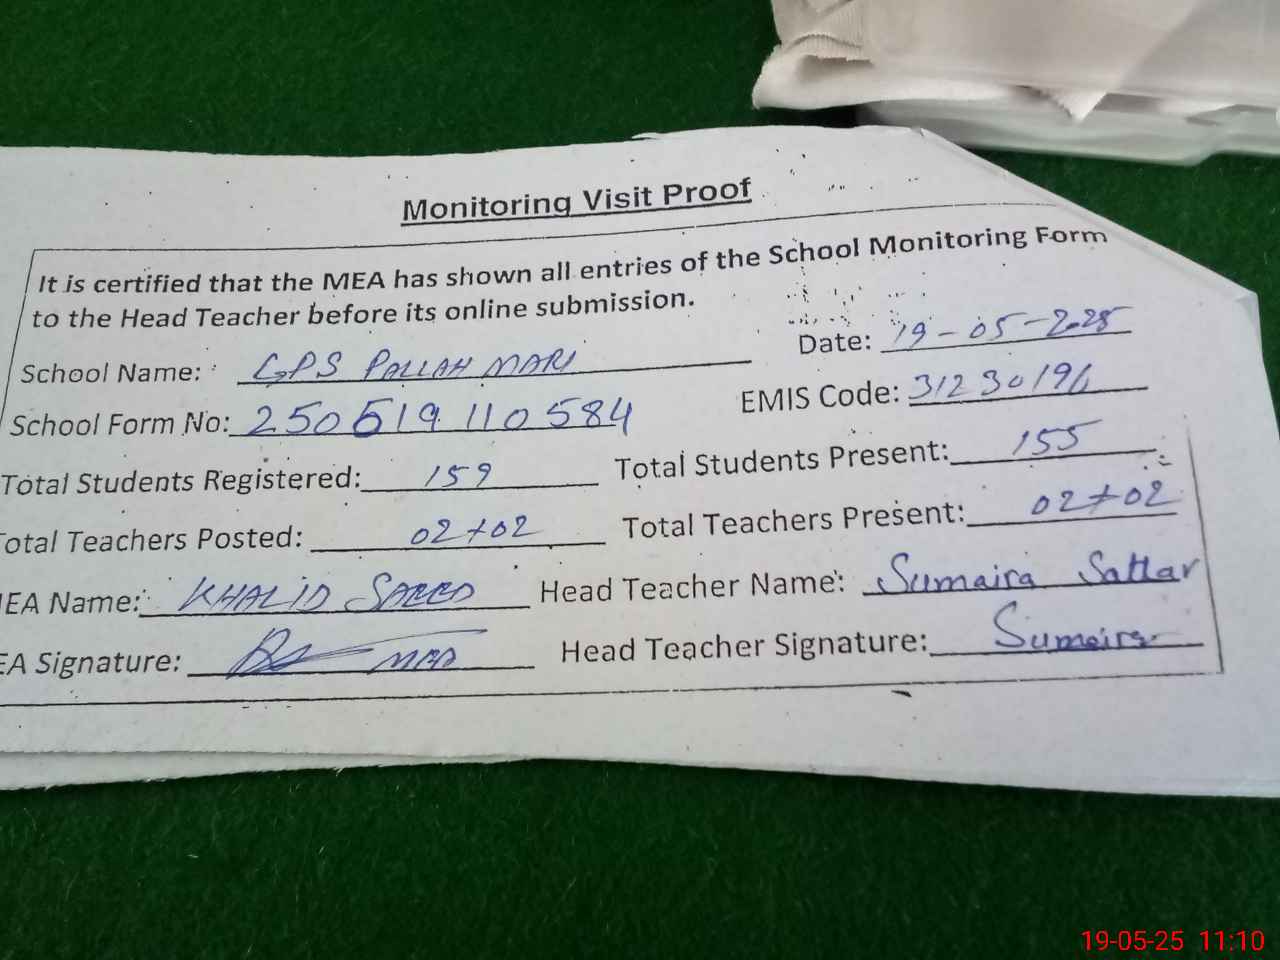 Monitoring Visit Proof
It is certified that the MEA has shown all entries of the School Monitoring Form
to the Head Teacher before its online submission.
School Name: GPS PALLAH MARI Date: 19-05-2025
School Form No: 250519110584 EMIS Code: 31230196
Total Students Registered: 159 Total Students Present: 155
Total Teachers Posted: 02+02 Total Teachers Present: 02+02
MEA Name: KHALID SAEED Head Teacher Name: Sumaira Sattar
EA Signature: MEA Head Teacher Signature: Sumaira
19-05-25 11:10